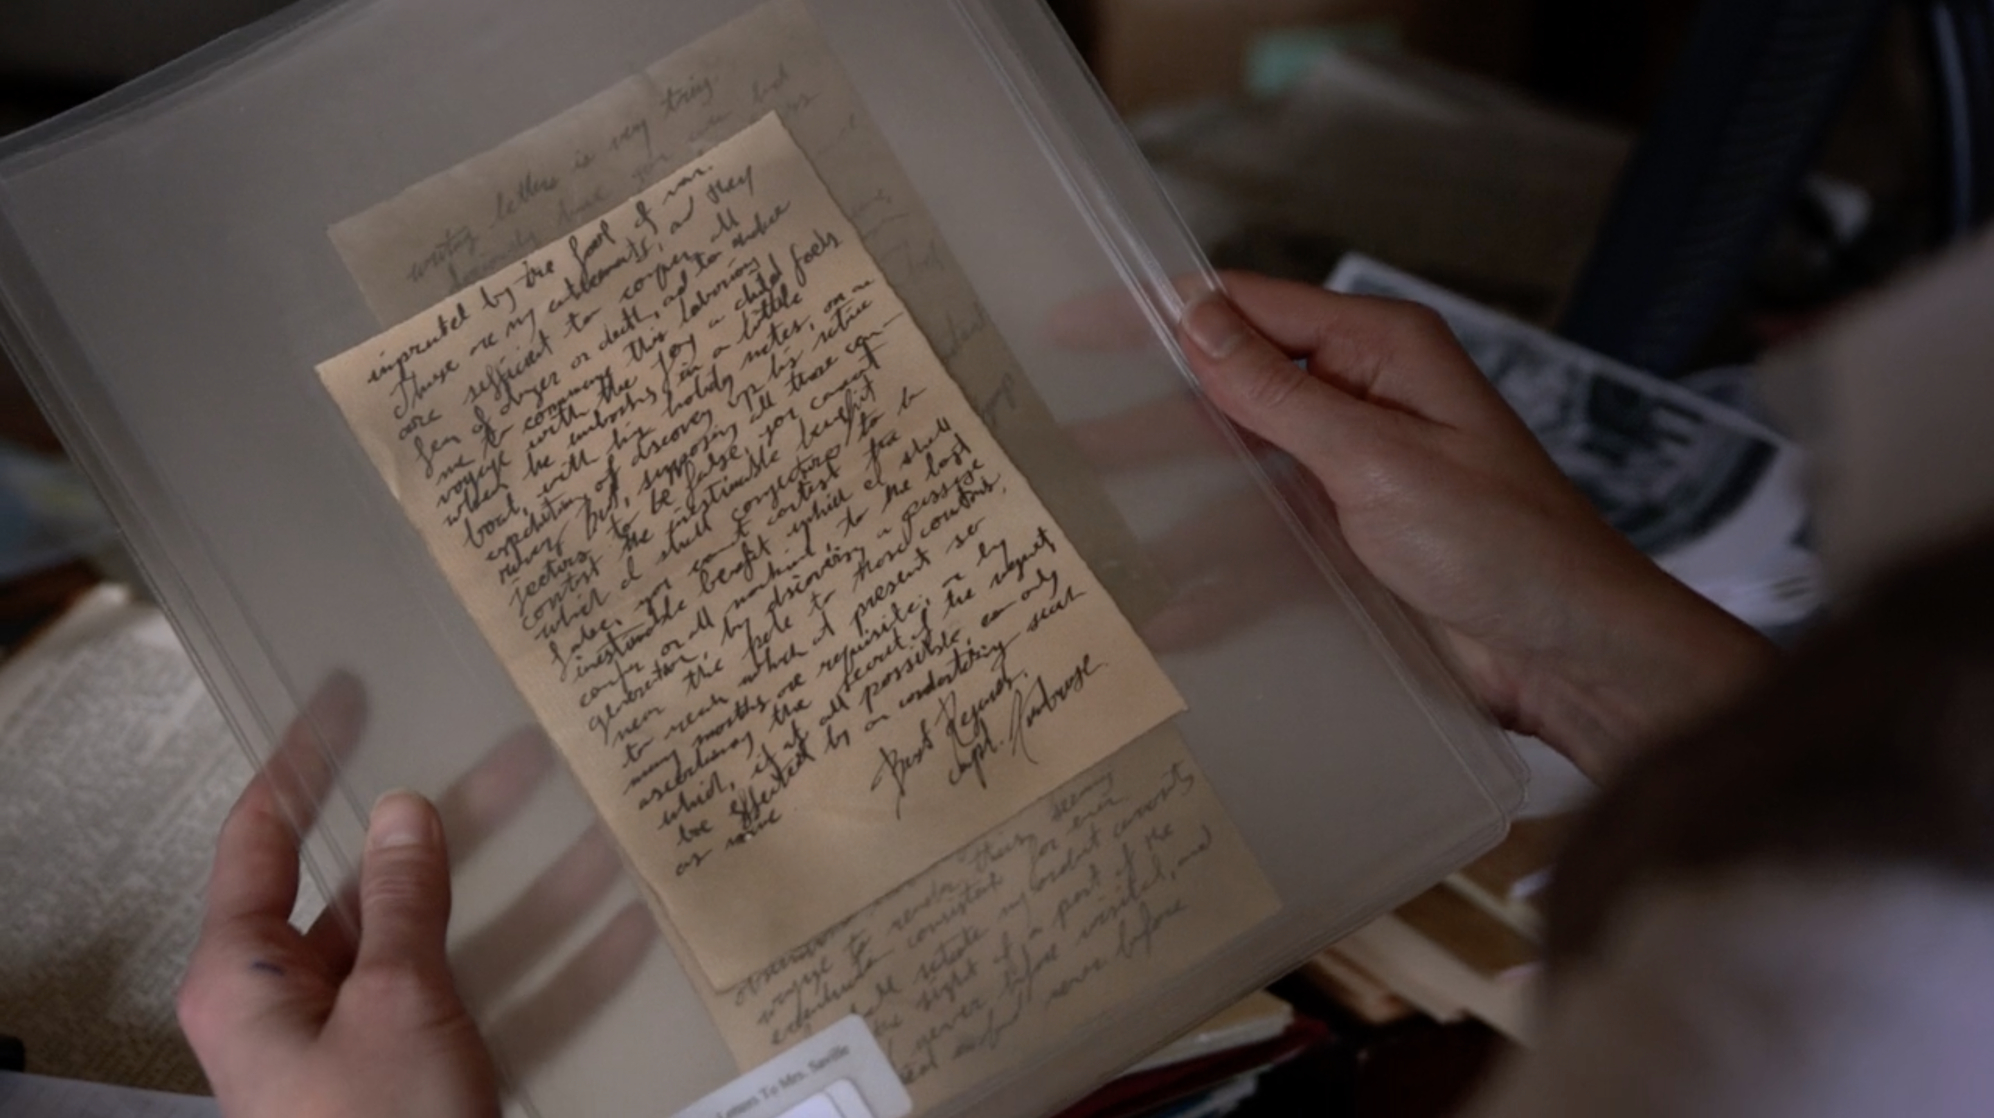 writing letters is very
imprinted by the foot of man.
These are my enticements, and they
are sufficient to conquer all
fear of danger or death, and to induce
me to commence this laborious
voyage with the joy a child feels
when he embarks in a little
boat, with his holiday mates, on an
expedition of discovery up his native
river. But, supposing all these con-
jectures to be false, you cannot
contest the inestimable benefit
which I shall conjectures to be
false, you cannot contest the
inestimable benefit which I shall
confer on all mankind, to the last
generation, by discovering a passage
near the pole to those countries,
to reach which at present so
many months are requisite; or by
ascertaining the secret of the magnet
which, if at all possible, can only
be effected by an undertaking such
as mine
Best Regards,
Capt. Ambrose
observations
voyage to render their seeming
consistent for ever
shall satiate my ardent curiosity
the sight of a part of the
never before visited, and
never before
Letters To Mrs. Saville